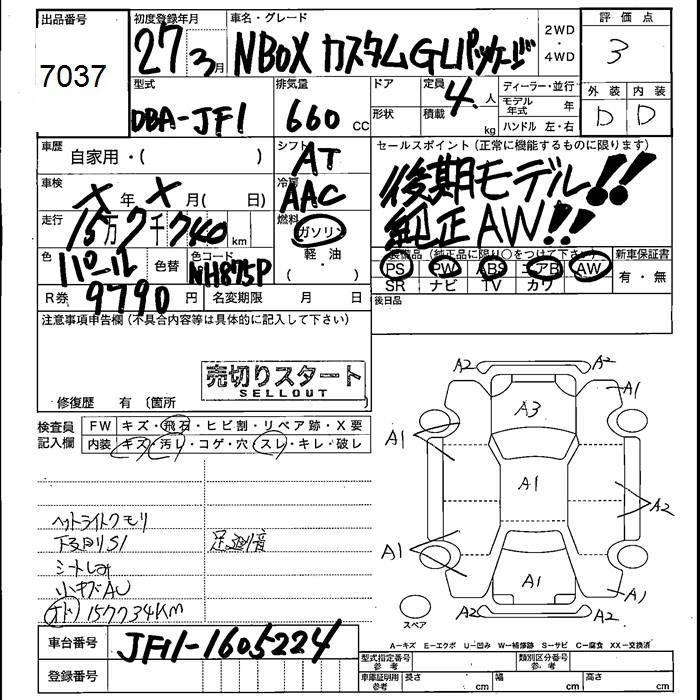 出品番号 初度登録年月 車名・グレード 2WD ・ 4WD 評価点
7037 27年 3月 NBOX カスタムGLパッケージ 3
型式 排気量 ドア 定員 ディーラー・並行 外装 内装
DBA-JF1 660 CC 形状 4人 積載 kg モデル年式 年 D D
ハンドル 左・右
車歴 自家用・( ) シフト AT セールスポイント(正常に機能するものに限ります)
車検 X年 X月( 日) 冷房 AAC 後期モデル!!
走行 15万7千740km 燃料 ガソリン 純正AW!!
色 パール 色替 色コード NH875P 軽・油 ・( )
装備品(純正品に限り○をつけて下さい) 新車保証書
PS PW ABS エアB AW 有・無
SR ナビ TV カワ
R券 9790円 名変期限 月 日 後日品
注意事項申告欄(不具合内容等は具体的に記入して下さい)
売切りスタート
SELLOUT
修復歴 有 〔箇所 〕
検査員記入欄 FW キズ・飛石・ヒビ割・リペア跡・X要
内装 キズ・汚レ・コゲ・穴・スレ・キレ・破レ
ヘットライトクモリ
下廻りS1 足廻り音
小キズAU
157734KM
A2 A2
A1 A3 A1
A1 A2
A1 A1 A1
A2 A2
スペア
A-キズ E-エクボ U-凹み W-補修跡 S-サビ C-腐食 XX-交換済
車台番号 JF1-1605224
登録番号
型式指定番号 参考 類別区分番号 参考
車庫証明用 参考 長さ cm 幅 cm 高さ cm